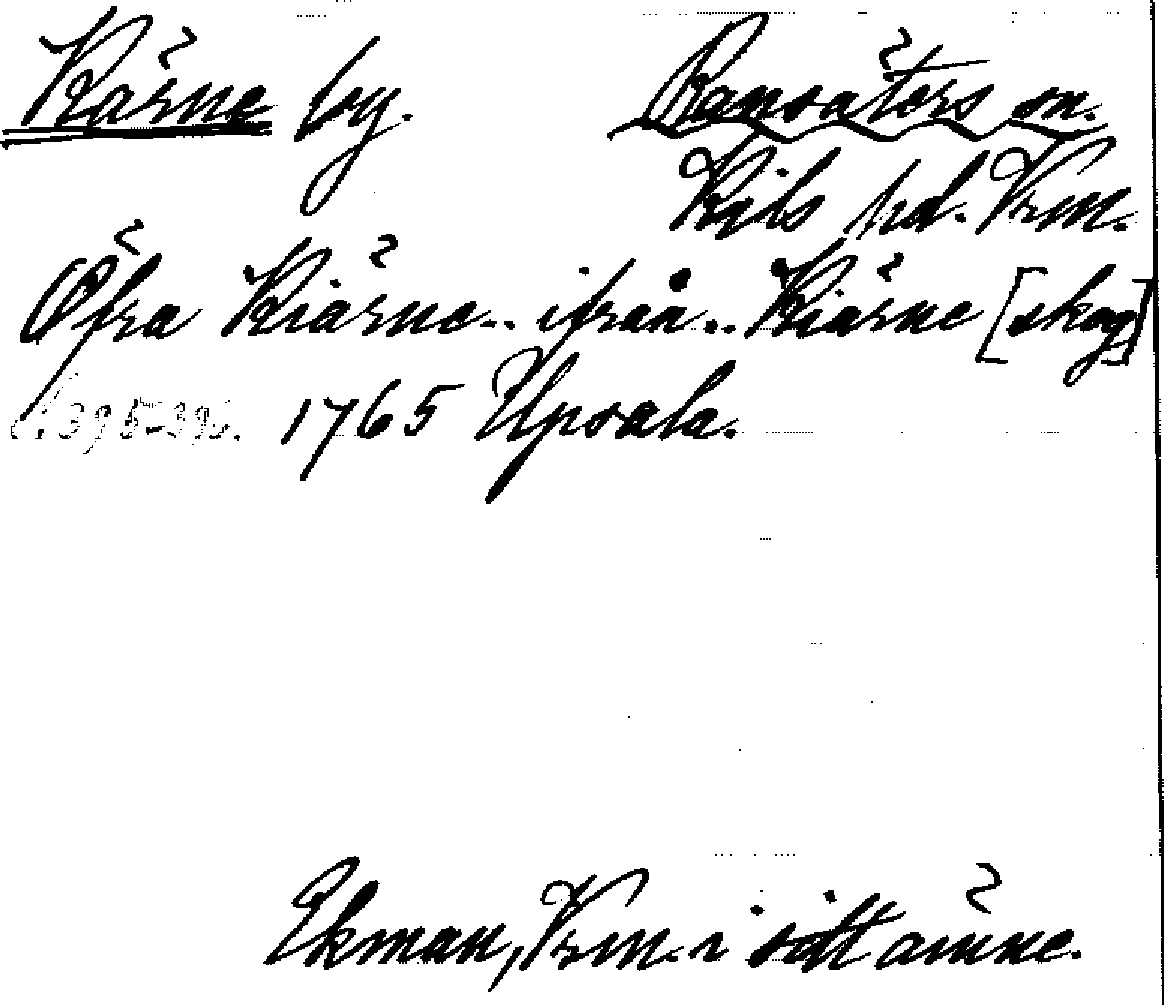 Kärne by. Ransäters sn.
Kils hd. Vrm.
Öfra Kiärne.. ifrån.. Kiärne [skog]
s. 395-396. 1765 Upsala.
Ekman, Vrm. i sitt ämne.